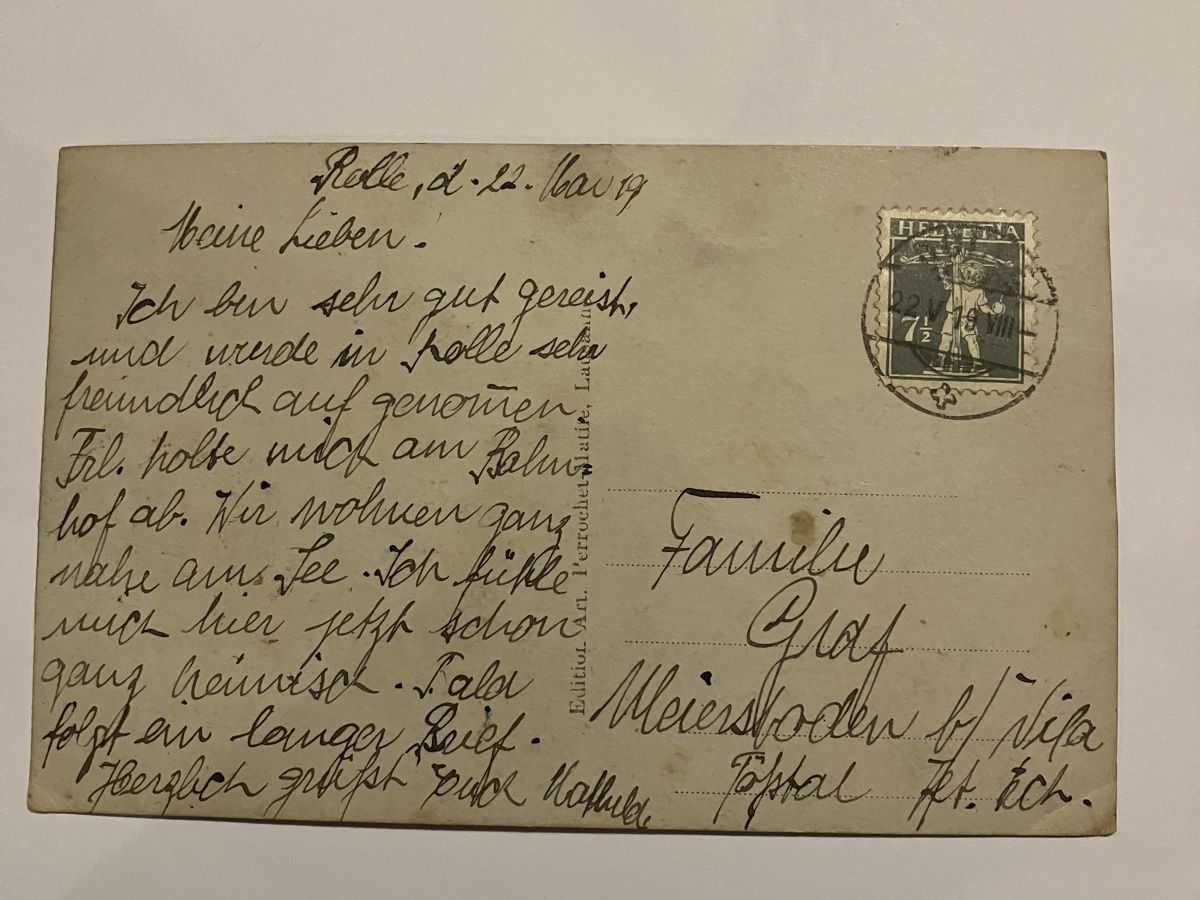 Rolle, d. 22. Mai 19
Meine Lieben.
Ich bin sehr gut gereist,
und wurde in Rolle sehr
freundlich auf genom̄en
Frl. holte mich am Bahn-
hof ab. Wir wohnen ganz
nahe am See. Ich fühle
mich hier jetzt schon
ganz heimisch. Bald
folgt ein langer Brief.
Herzlich grüsst Euch Mathilde.
Edition Art. Perrochet-Matile, Lausanne
HELVETIA
7½
22.V.19 VIII
Familie
Graf
Meiersboden b/ Wila
Tösstal Kt. Zch.